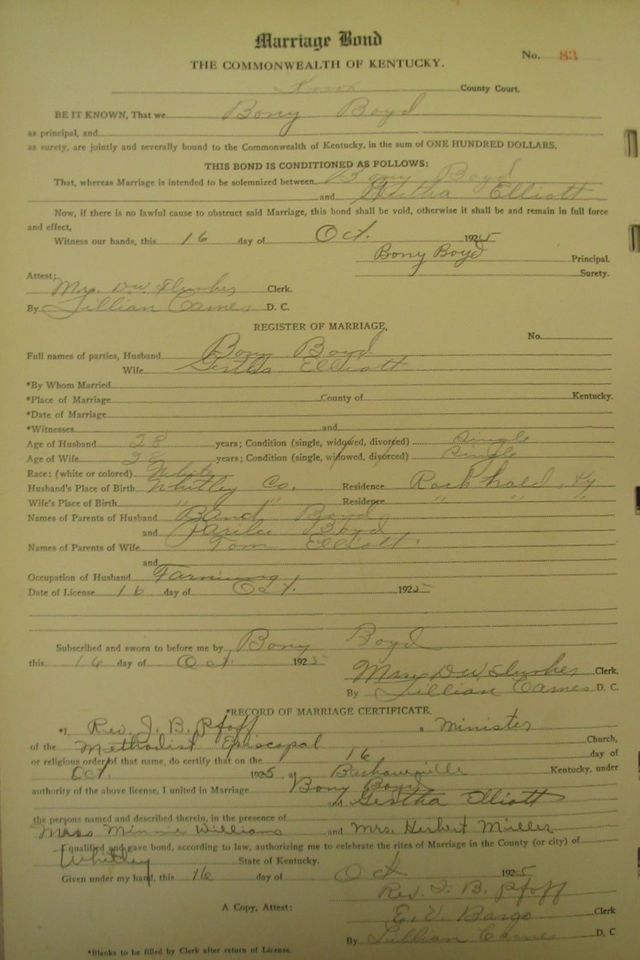 Marriage Bond
No. 83
THE COMMONWEALTH OF KENTUCKY.
Knox County Court.
BE IT KNOWN, That we Bony Boyd
as principal, and
as surety, are jointly and severally bound to the Commonwealth of Kentucky, in the sum of ONE HUNDRED DOLLARS.
THIS BOND IS CONDITIONED AS FOLLOWS:
That, whereas Marriage is intended to be solemnized between Bony Boyd
and Gertha Elliott
Now, if there is no lawful cause to obstruct said Marriage, this bond shall be void, otherwise it shall be and remain in full force
and effect,
Witness our hands, this 16 day of Oct. 1925
Bony Boyd Principal.
Surety.
Attest:
Mrs. D.W. Slusher Clerk.
By Lillian Carnes D. C.
REGISTER OF MARRIAGE,
No.
Full names of parties, Husband Bony Boyd
Wife Gertha Elliott
*By Whom Married
*Place of Marriage County of Kentucky.
*Date of Marriage
*Witnesses and
Age of Husband 28 years; Condition (single, widowed, divorced) Single
Age of Wife 28 years; Condition (single, widowed, divorced) Single
Race: (white or colored) White
Husband's Place of Birth Whitley Co. Residence Rockhold, Ky
Wife's Place of Birth " " Residence " " "
Names of Parents of Husband Boyd
and Boyd
Names of Parents of Wife Tom Elliott
and
Occupation of Husband Farming
Date of License 16 day of Oct. 1925
Subscribed and sworn to before me by Bony Boyd
this 16 day of Oct 1925
Mrs. D.W. Slusher Clerk,
By Lillian Carnes D. C.
*RECORD OF MARRIAGE CERTIFICATE.
*I, Rev. J. B. Pfoff a Minister
of the Methodist Episcopal Church,
or religious order of that name, do certify that on the 16 day of
Oct. 1925 at Kentucky, under
authority of the above license, I united in Marriage Bony Boyd
and Gertha Elliott
the persons named and described therein, in the presence of
Miss Minnie Williams and Mrs. Herbert Miller
I qualified and gave bond, according to law, authorizing me to celebrate the rites of Marriage in the County (or city) of
Whitley State of Kentucky.
Given under my hand, this 16 day of Oct 1925
Rev. J. B. Pfoff
A Copy, Attest: E. V. Bargo Clerk
By Lillian Carnes D. C.
*Blanks to be filled by Clerk after return of License.